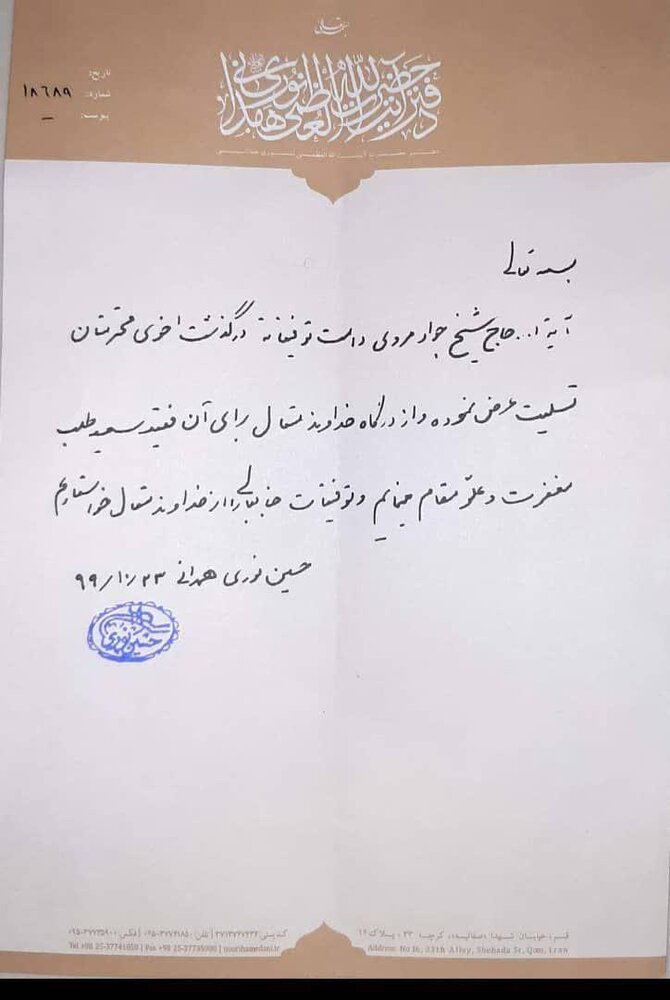 بسمه تعالی
دفتر حضرت آیت الله العظمی نوری همدانی
دفتر حضرت آیت الله العظمی نوری همدانی
تاریخ:
شماره: ۱۸۶۸۹
پیوست: –
بسمه تعالی
آیة ا... حاج شیخ جواد مروی دامت توفیقاته درگذشت اخوی محترمتان
تسلیت عرض نموده و از درگاه خداوند متعال برای آن فقید سعید طلب
مغفرت و علوّ مقام مینمایم و توفیقات جنابعالی را از خداوند متعال خواستارم
حسین نوری همدانی ۹۹/۱۰/۲۳
حسین نوری
قم، خیابان شهدا (صفائیه)، کوچه ۲۳، پلاک ۱۶
Address: No 16, 23th Alley, Shohada St, Qom, Iran
Tel +98 25-37741850 | Fax +98 25-37735900 | noorihamedani.ir